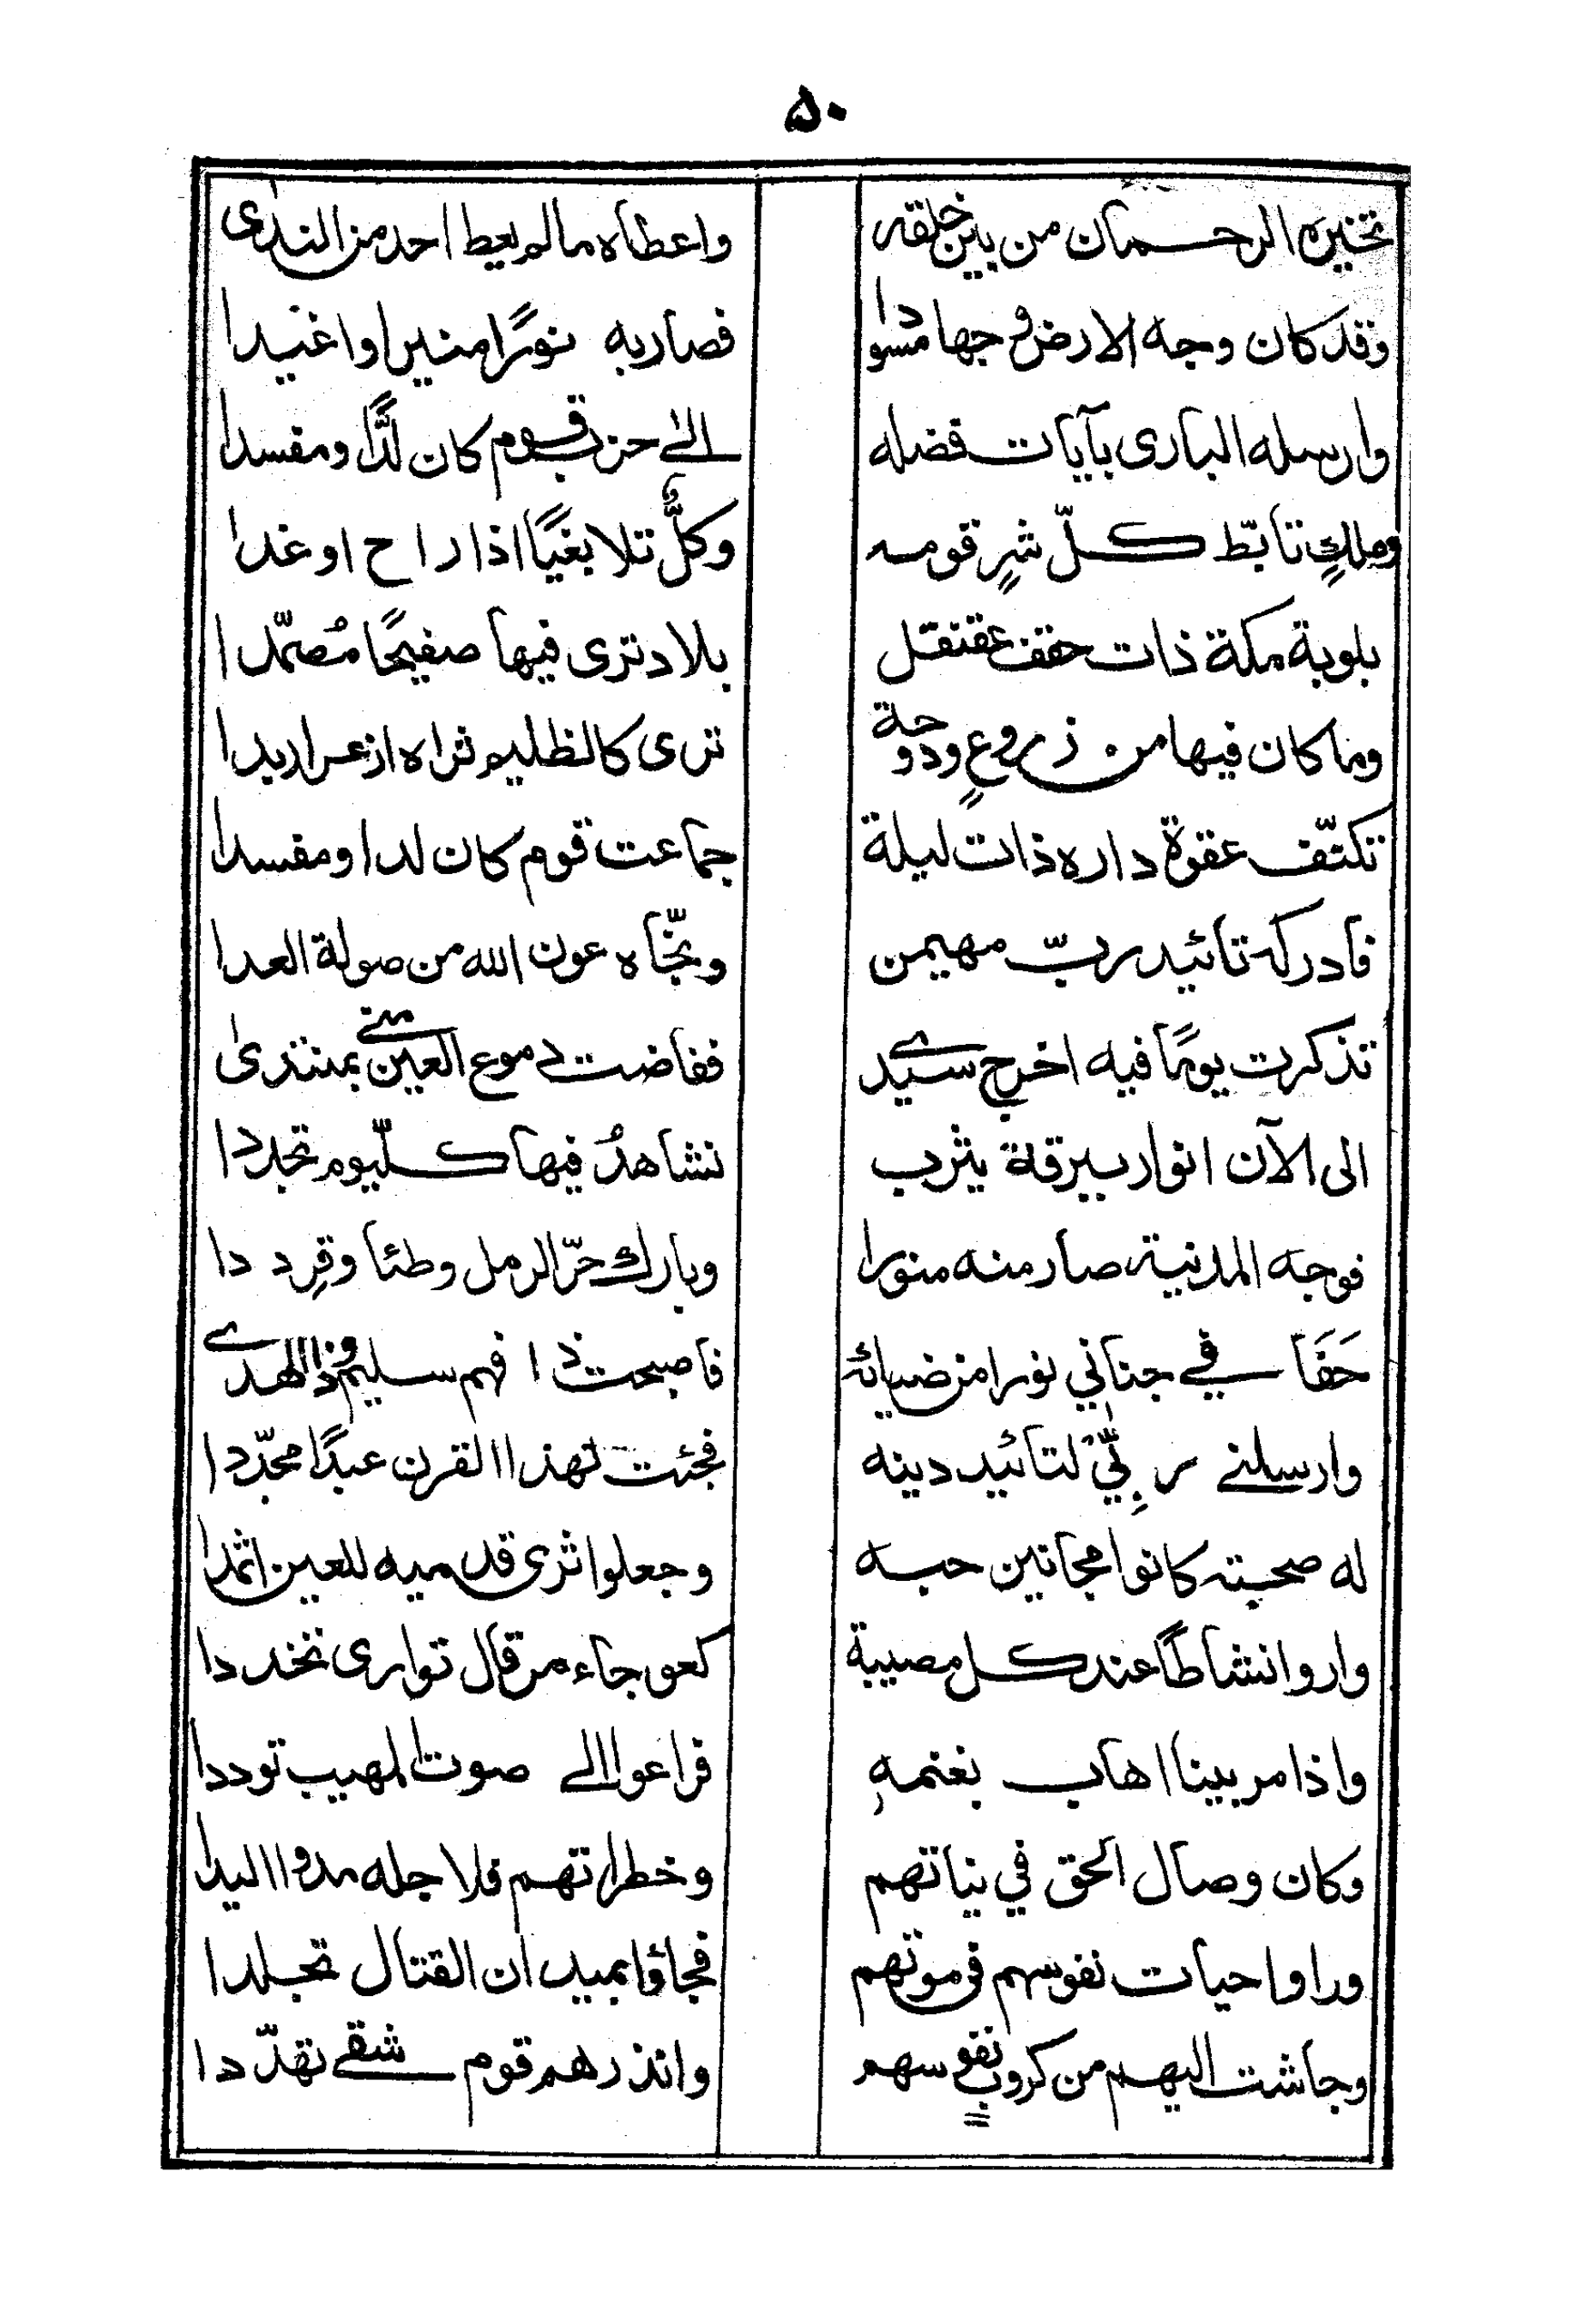 ۵۰
تخيره الرحمان من بين خلقه واعطاه مالم يعط احد من الندى
وقد كان وجه الارض وجها مسودا فصار به نورًا منيرا واغيدا
وارسله البارى بآيات فضله الى حزب قوم كان لُدًّا ومفسدا
وملكٍ تأبّط كلّ شرٍ قومه وكلٌّ تلا بغيًا اذا راح اوغدا
بلوبة مكة ذات حقف عقنقل بلاد ترى فيها صفيحًا مُصمّدا
وما كان فيها من زروعٍ ودوحة ترى كالظليم ثراه ازعر اربدا
تكنّف عقوة داره ذات ليلة جماعت قوم كان لدا ومفسدا
فادركه تائيد ربّ مهيمن ونجّاه عون الله من صولة العدا
تذكرت يومًا فيه اخرج سيدے ففاضت دموع العين منے بمنتدىٰ
الى الآن انوار ببرقة يثرب نشاهدُ فيها كلّيوم تجددا
فوجه المدنية صار منه منورا وبارك حرّ الرمل وطئا وقردِدا
حَفَا فے جناني نورا من ضيائه فاصبحت ذا فهم سليم وذا الهدے
وارسلنے ربّي لتائيد دينه فجئت لهذا القرن عبدًا مجدّدا
له صحبته كانوا مجانين حبه وجعلوا ثرى قدميه للعين اثمدا
واروا نشاطًا عند كل مصيبة كعوجاء مرقال توارى تخددا
واذا مربينا اهاب بغنمهٖ فراعوا الے صوت المهيب توددا
وكان وصال الحق في نياتهم وخطراتهم فلاجله مدوا اليدا
وراوا حيات نفوسهم فى موتهم فجاؤا بميدان القتال تجلدا
وجاشت اليهم من كروب نفوسهم وانذرهم قوم شقے تهدّدا